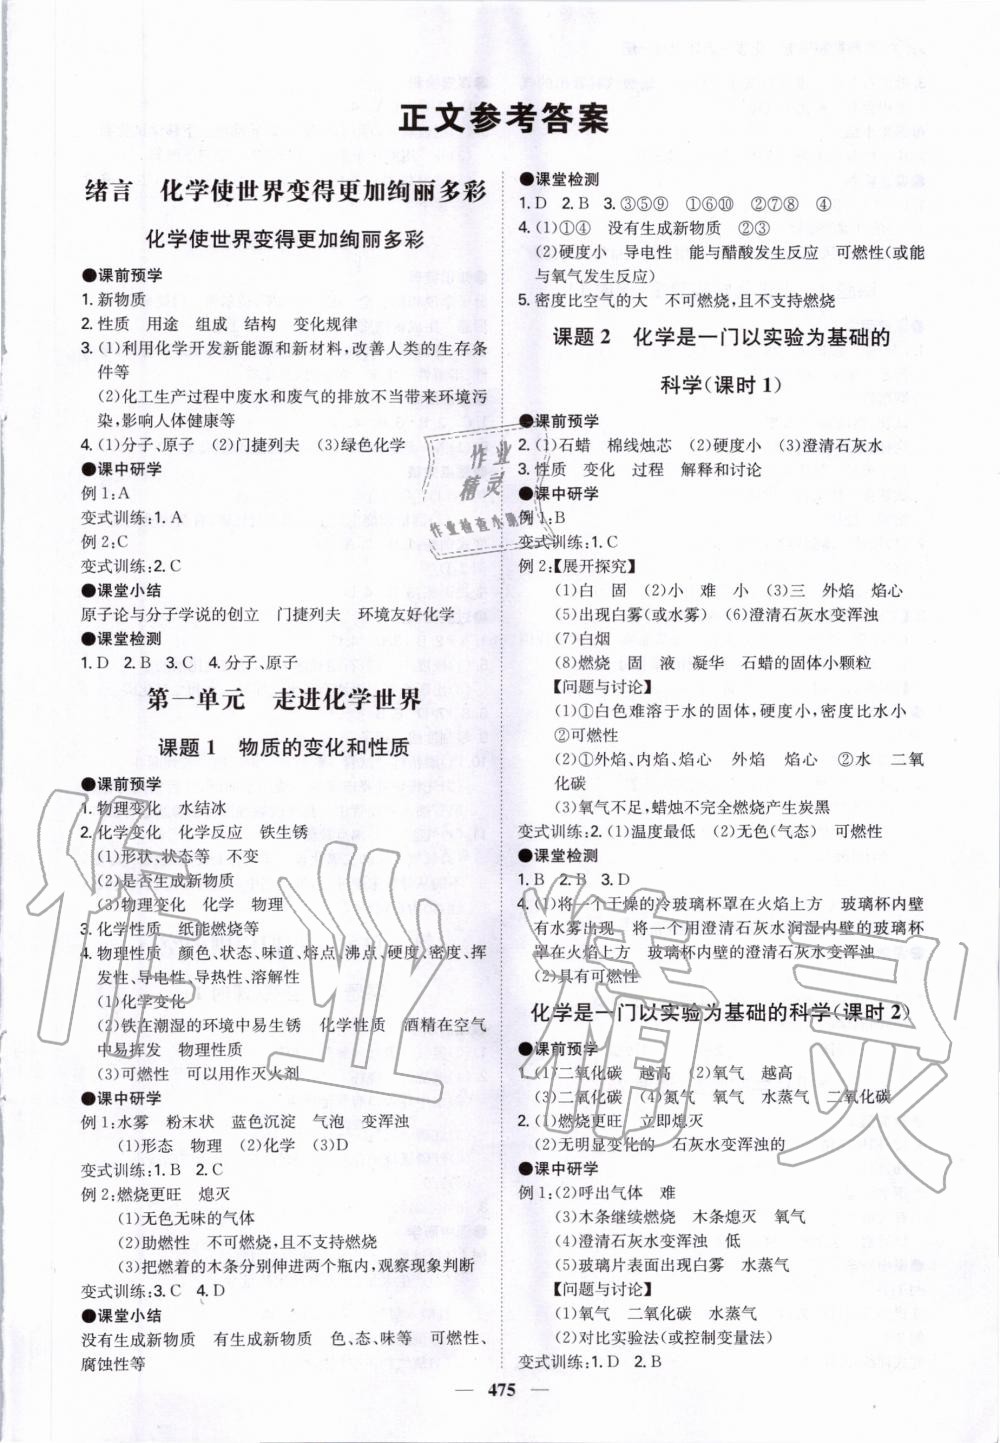 正文参考答案
绪言　化学使世界变得更加绚丽多彩
化学使世界变得更加绚丽多彩
●课前预学
1. 新物质
2. 性质　用途　组成　结构　变化规律
3. (1)利用化学开发新能源和新材料,改善人类的生存条
件等
(2)化工生产过程中废水和废气的排放不当带来环境污
染,影响人体健康等
4. (1)分子、原子　(2)门捷列夫　(3)绿色化学
●课中研学
例 1:A
变式训练:1. A
例 2:C
变式训练:2. C
●课堂小结
原子论与分子学说的创立　门捷列夫　环境友好化学
●课堂检测
1. D　2. B　3. C　4. 分子、原子
第一单元　走进化学世界
课题 1　物质的变化和性质
●课前预学
1. 物理变化　水结冰
2. 化学变化　化学反应　铁生锈
(1)形状、状态等　不变
(2)是否生成新物质
(3)物理变化　化学　物理
3. 化学性质　纸能燃烧等
4. 物理性质　颜色、状态、味道、熔点、沸点、硬度、密度、挥
发性、导电性、导热性、溶解性
(1)化学变化
(2)铁在潮湿的环境中易生锈　化学性质　酒精在空气
中易挥发　物理性质
(3)可燃性　可以用作灭火剂
●课中研学
例 1:水雾　粉末状　蓝色沉淀　气泡　变浑浊
(1)形态　物理　(2)化学　(3)D
变式训练:1. B　2. C
例 2:燃烧更旺　熄灭
(1)无色无味的气体
(2)助燃性　不可燃烧,且不支持燃烧
(3)把燃着的木条分别伸进两个瓶内,观察现象判断
变式训练:3. C　4. D
●课堂小结
没有生成新物质　有生成新物质　色、态、味等　可燃性、
腐蚀性等
●课堂检测
1. D　2. B　3. ③⑤⑨　①⑥⑩　②⑦⑧　④
4. (1)①④　没有生成新物质　②③
(2)硬度小　导电性　能与醋酸发生反应　可燃性(或能
与氧气发生反应)
5. 密度比空气的大　不可燃烧,且不支持燃烧
课题 2　化学是一门以实验为基础的
科学(课时 1)
●课前预学
2. (1)石蜡　棉线烛芯　(2)硬度小　(3)澄清石灰水
3. 性质　变化　过程　解释和讨论
●课中研学
例 1:B
变式训练:1. C
例 2:【展开探究】
(1)白　固　(2)小　难　小　(3)三　外焰　焰心
(5)出现白雾(或水雾)　(6)澄清石灰水变浑浊
(7)白烟
(8)燃烧　固　液　凝华　石蜡的固体小颗粒
【问题与讨论】
(1)①白色难溶于水的固体,硬度小,密度比水小
②可燃性
(2)①外焰、内焰、焰心　外焰　焰心　②水　二氧
化碳
(3)氧气不足,蜡烛不完全燃烧产生炭黑
变式训练:2. (1)温度最低　(2)无色(气态)　可燃性
●课堂检测
1. B　2. B　3. D
4. (1)将一个干燥的冷玻璃杯罩在火焰上方　玻璃杯内壁
有水雾出现　将一个用澄清石灰水润湿内壁的玻璃杯
罩在火焰上方　玻璃杯内壁的澄清石灰水变浑浊
(2)具有可燃性
化学是一门以实验为基础的科学(课时 2)
●课前预学
1. (1)二氧化碳　越高　(2)氧气　越高
(3)二氧化碳　(4)氮气　氧气　水蒸气　二氧化碳
2. (1)燃烧更旺　立即熄灭
(2)无明显变化的　石灰水变浑浊的
●课中研学
例 1:(2)呼出气体　难
(3)木条继续燃烧　木条熄灭　氧气
(4)澄清石灰水变浑浊　低
(5)玻璃片表面出现白雾　水蒸气
【问题与讨论】
(1)氧气　二氧化碳　水蒸气
(2)对比实验法(或控制变量法)
变式训练:1. D　2. B
— 475 —
作业精灵
作业
精灵
作业检查小